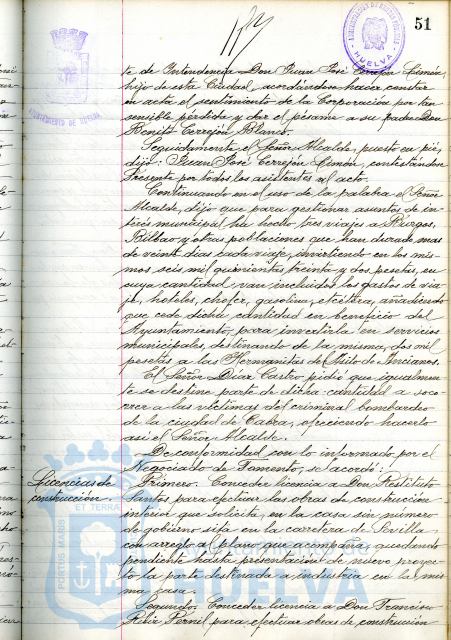 51
AYUNTAMIENTO DE HUELVA
HUELVA
te de Intendencia Don Juan José Cerrejón Limón,
hijo de esta Ciudad, acordándose hacer constar
en acta el sentimiento de la Corporación por tan
sensible pérdida y dar el pésame a su padre Don
Benito Cerrejón Blanco.
Seguidamente el Señor Alcalde, puesto en pié,
dijo: Juan José Cerrejón Limón, contestándose
Presente por todos los asistentes al acto.
Continuando en el uso de la palabra el Señor
Alcalde, dijo que para gestionar asuntos de in-
terés municipal ha hecho tres viajes a Burgos,
Bilbao y otras poblaciones que han durado mas
de veinte días cada viaje, invirtiendo en los mis-
mos seis mil quinientas treinta y dos pesetas, en
cuya cantidad van incluidos los gastos de via-
je, hoteles, chofer, gasolina, etcétera, añadiendo
que cede dicha cantidad en beneficio del
Ayuntamiento, para invertirla en servicios
municipales, destinando de la misma, dos mil
pesetas a las Hermanitas del Asilo de Ancianos.
El Señor Díaz Castro pidió que igualmen-
te se destine parte de dicha cantidad a soco-
rrer a las víctimas del criminal bombardeo
de la ciudad de Cabra, ofreciendo hacerlo
así el Señor Alcalde.
De conformidad con lo informado por el
Negociado de Fomento, se acordó:
Licencias de
construcción.
Primero. Conceder licencia a Don Restituto
Santos para efectuar las obras de construcción
interior que solicita, en la casa sin número
de gobierno sita en la carretera de Sevilla
con arreglo al plano que acompaña quedando
pendiente hasta presentación de nuevo proyec-
to la parte destinada a industria en la mis-
ma casa.
Segundo. Conceder licencia a Don Francisco
Feliz Pernil para efectuar obras de construcción
PORTUS MARIS
ET TERRA
HUELVA